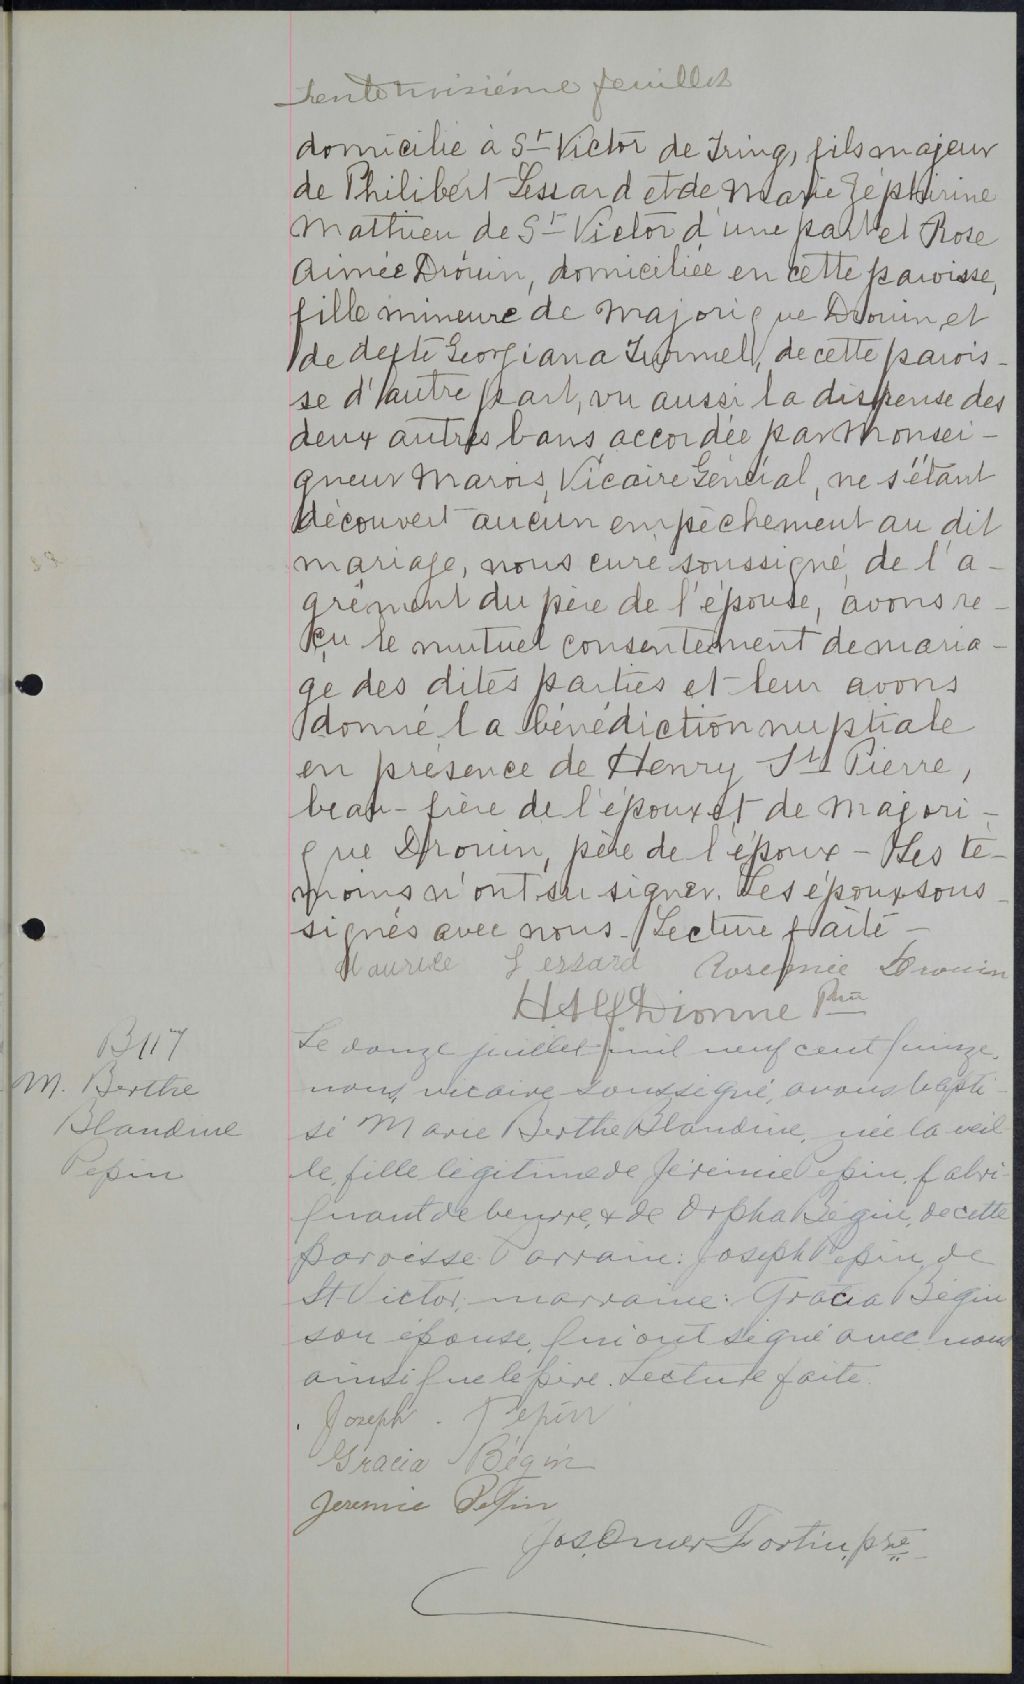 Trente troisième feuillet
domicilié à St Victor de Tring, fils majeur
de Philibert Lessard et de Marie Zéphirine
Mathieu de St Victor d'une part et Rose
Aimée Drouin, domiciliée en cette paroisse,
fille mineure de Majorique Drouin et
de defte Georgiana Turmel, de cette parois-
se d'autre part, vu aussi la dispense des
deux autres bans accordée par Monsei-
gneur Marois, Vicaire Général, ne s'étant
découvert aucun empêchement au dit
mariage, nous curé soussigné, de l'a-
grément du père de l'épouse, avons re-
çu le mutuel consentement de maria-
ge des dites parties et leur avons
donné la bénédiction nuptiale
en présence de Henry St Pierre,
beau-frère de l'époux et de Majori-
que Drouin, père de l'époux - Les té-
moins n'ont su signer. Les époux sous
signés avec nous - Lecture faite -
Maurice Lessard Rosemie Drouin
H Alf Dionne Ptre
B 117
M. Berthe
Blandine
Pepin
Le douze juillet mil neuf cent quinze,
nous, vicaire soussigné, avons bapti-
sé Marie Berthe Blandine, née la veil-
le, fille légitime de Jérémie Pepin, fabri-
quant de beurre, & de Orpha Bégin, de cette
paroisse. Parrain: Joseph Pepin, de
St-Victor, marraine: Gracia Bégin
son épouse, qui ont signé avec nous
ainsi que le père. Lecture faite.
Joseph . Pepin
Gracia Bégin
Jeremie Pepin
Jos. Omer Fortin, ptre